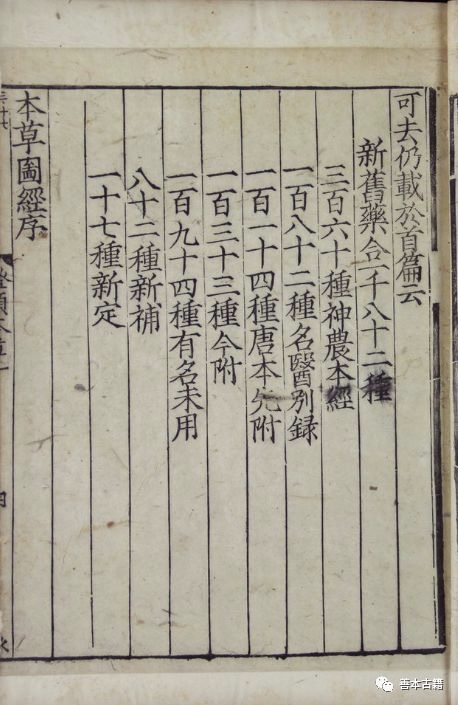 可去仍載於首篇云
新舊藥合一千八十二種
三百六十種神農本經
一百八十二種名醫別録
一百一十四種唐本先附
一百三十三種今附
一百九十四種有名未用
八十二種新補
一十七種新定
本草圖經序
善本古籍